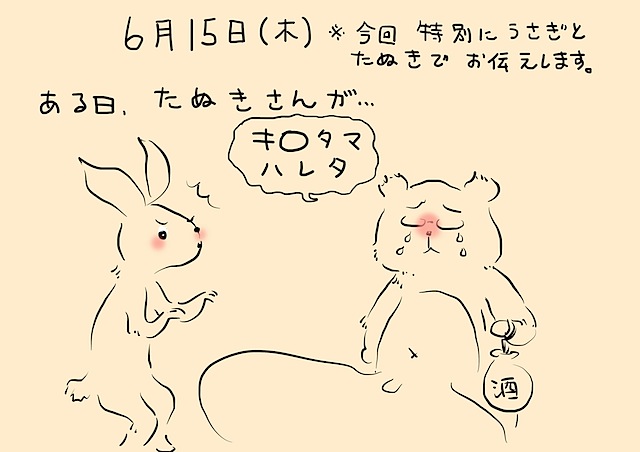 6月15日(木) ※今回 特別にうさぎと
たぬきで お伝えします。
ある日、たぬきさんが…
キ〇タマ
ハレタ
酒